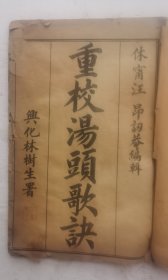 休甯汪　昂訒菴編輯
重校湯頭歌訣
興化林樹生署